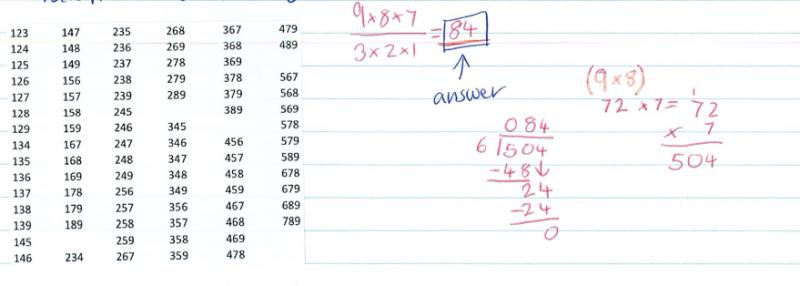 123 147 235 268 367 479
124 148 236 269 368 489
125 149 237 278 369
126 156 238 279 378 567
127 157 239 289 379 568
128 158 245 389 569
129 159 246 345 578
134 167 247 346 456 579
135 168 248 347 457 589
136 169 249 348 458 678
137 178 256 349 459 679
138 179 257 356 467 689
139 189 258 357 468 789
145 259 358 469
146 234 267 359 478
9×8×7
3×2×1
=84
answer
084
6 504
-48↓
24
-24
0
(9×8)
72 ×7= 72
1
× 7
504